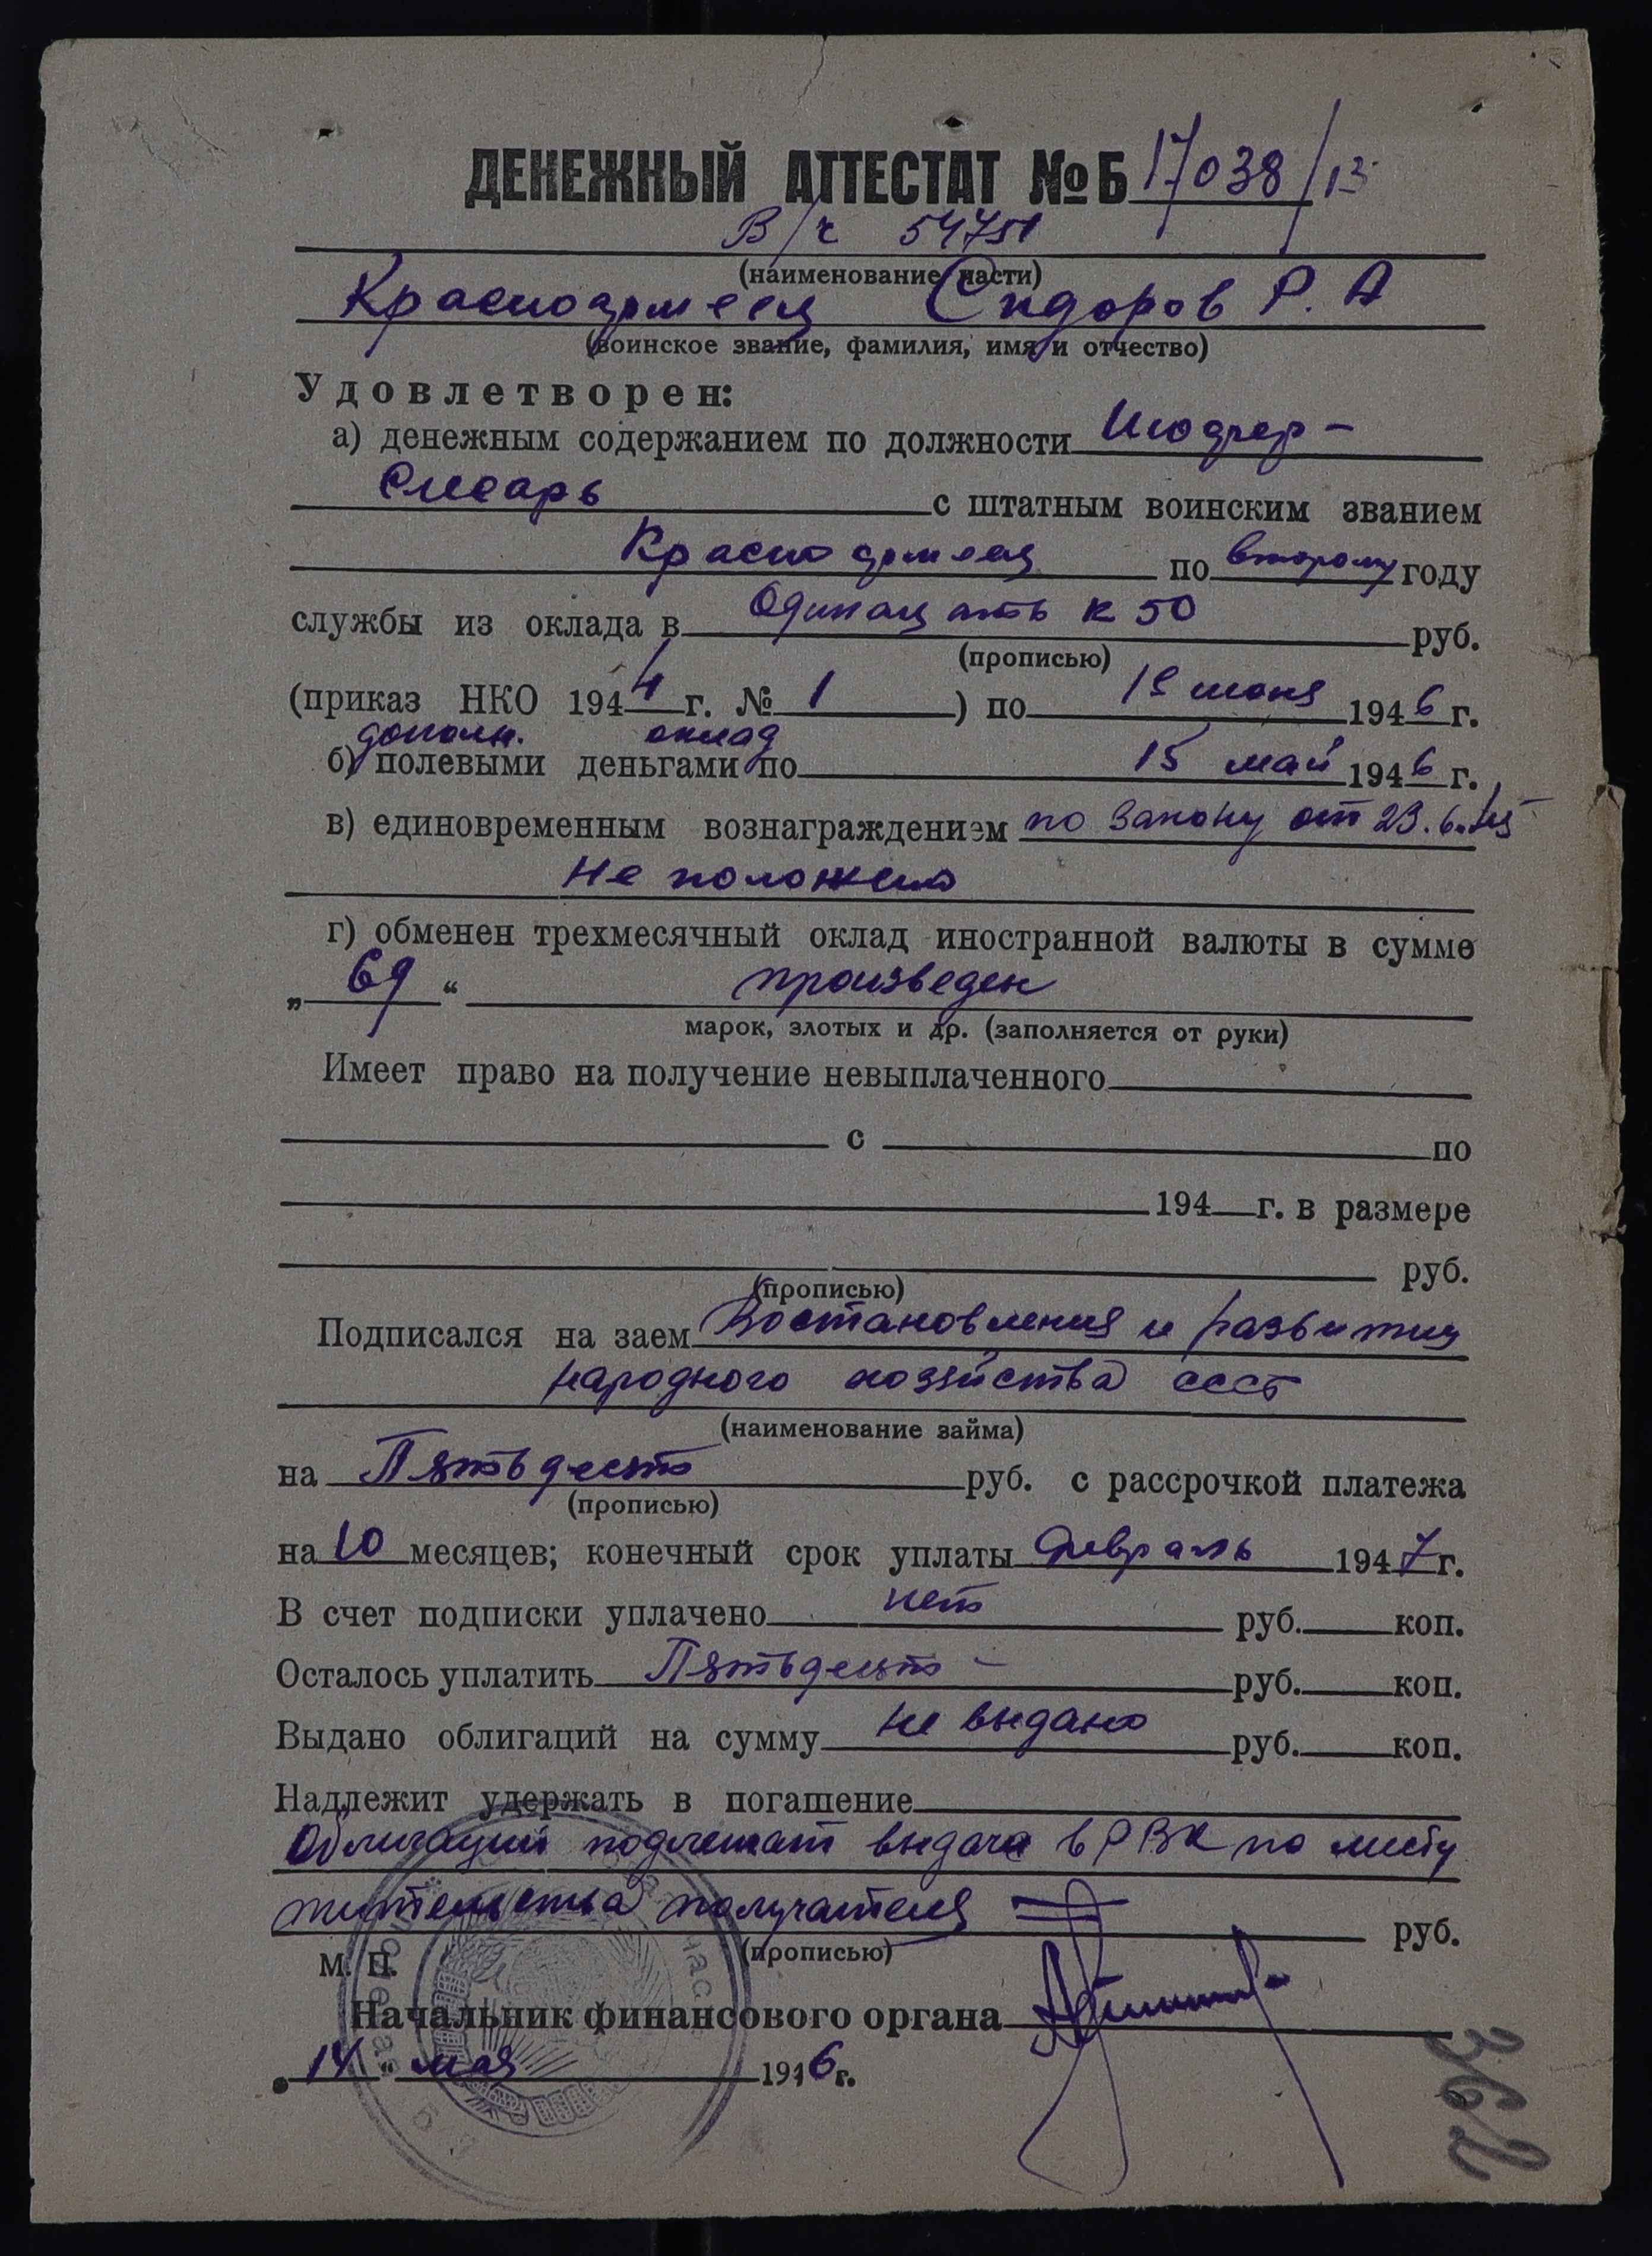 ДЕНЕЖНЫЙ АТТЕСТАТ № Б 17038/13
В/ч 54751
(наименование части)
Красноармеец Сидоров Р. А
(воинское звание, фамилия, имя и отчество)
Удовлетворен:
а) денежным содержанием по должности Шофер-
Слесарь с штатным воинским званием
Красноармеец по второму году
службы из оклада в Одинацать к 50 руб.
(прописью)
(приказ НКО 1944 г. № 1) по 1е июня 1946 г.
дополн. оклад
б) полевыми деньгами по 15 май 1946 г.
в) единовременным вознаграждением по Закону от 23.6.45
Не положено
г) обменен трехмесячный оклад иностранной валюты в сумме
„ 69 “ произведен
марок, злотых и др. (заполняется от руки)
Имеет право на получение невыплаченного
с по
194 г. в размере
руб.
(прописью)
Подписался на заем Востановления и развития
народного хозяйства ссср
(наименование займа)
на Пятьдесят руб. с рассрочкой платежа
(прописью)
на 10 месяцев; конечный срок уплаты февраль 1947 г.
В счет подписки уплачено нет руб. коп.
Осталось уплатить Пятьдесят - руб. коп.
Выдано облигаций на сумму не выдано руб. коп.
Надлежит удержать в погашение
Облигации подлежат выдаче в РВК по месту
жительства получателя руб.
(прописью)
М. П.
Начальник финансового органа
„14“ мая 1946 г.
362